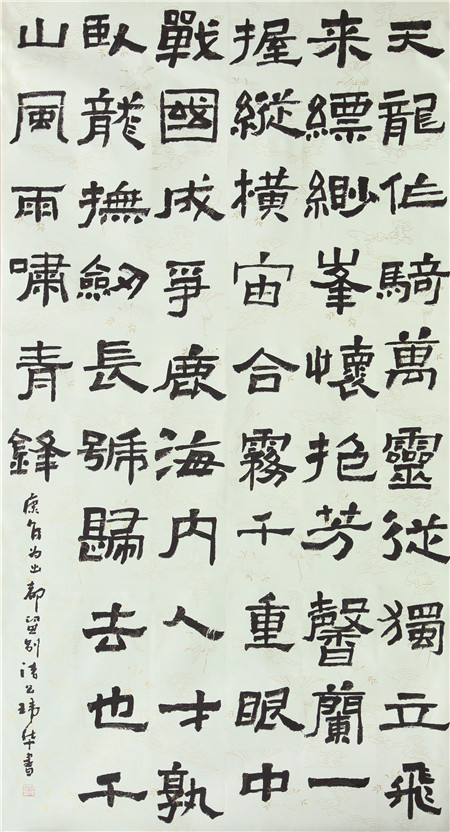 天龍作騎萬靈從獨立飛
来縹緲峯懷抱芳馨蘭一
握縱橫宙合霧千重眼中
戰國成爭鹿海内人才孰
臥龍撫劒長號歸去也千
山風雨嘯青鋒
康有为出都留别諸公 華書